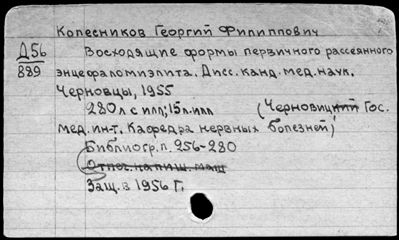 Колесников Георгий Филиппович
Д56
889
Восходящие формы первичного рассеянного
энцефаломиэлита. Дисс. канд. мед. наук.
Черновцы, 1955
280 л с илл; 15 л. илл (Черновицкий Гос.
мед. ин-т. Кафедра нервных болезней)
Библиогр. л. 256-280
Отпеч. на пиш. маш
Защ. в 1956 г.